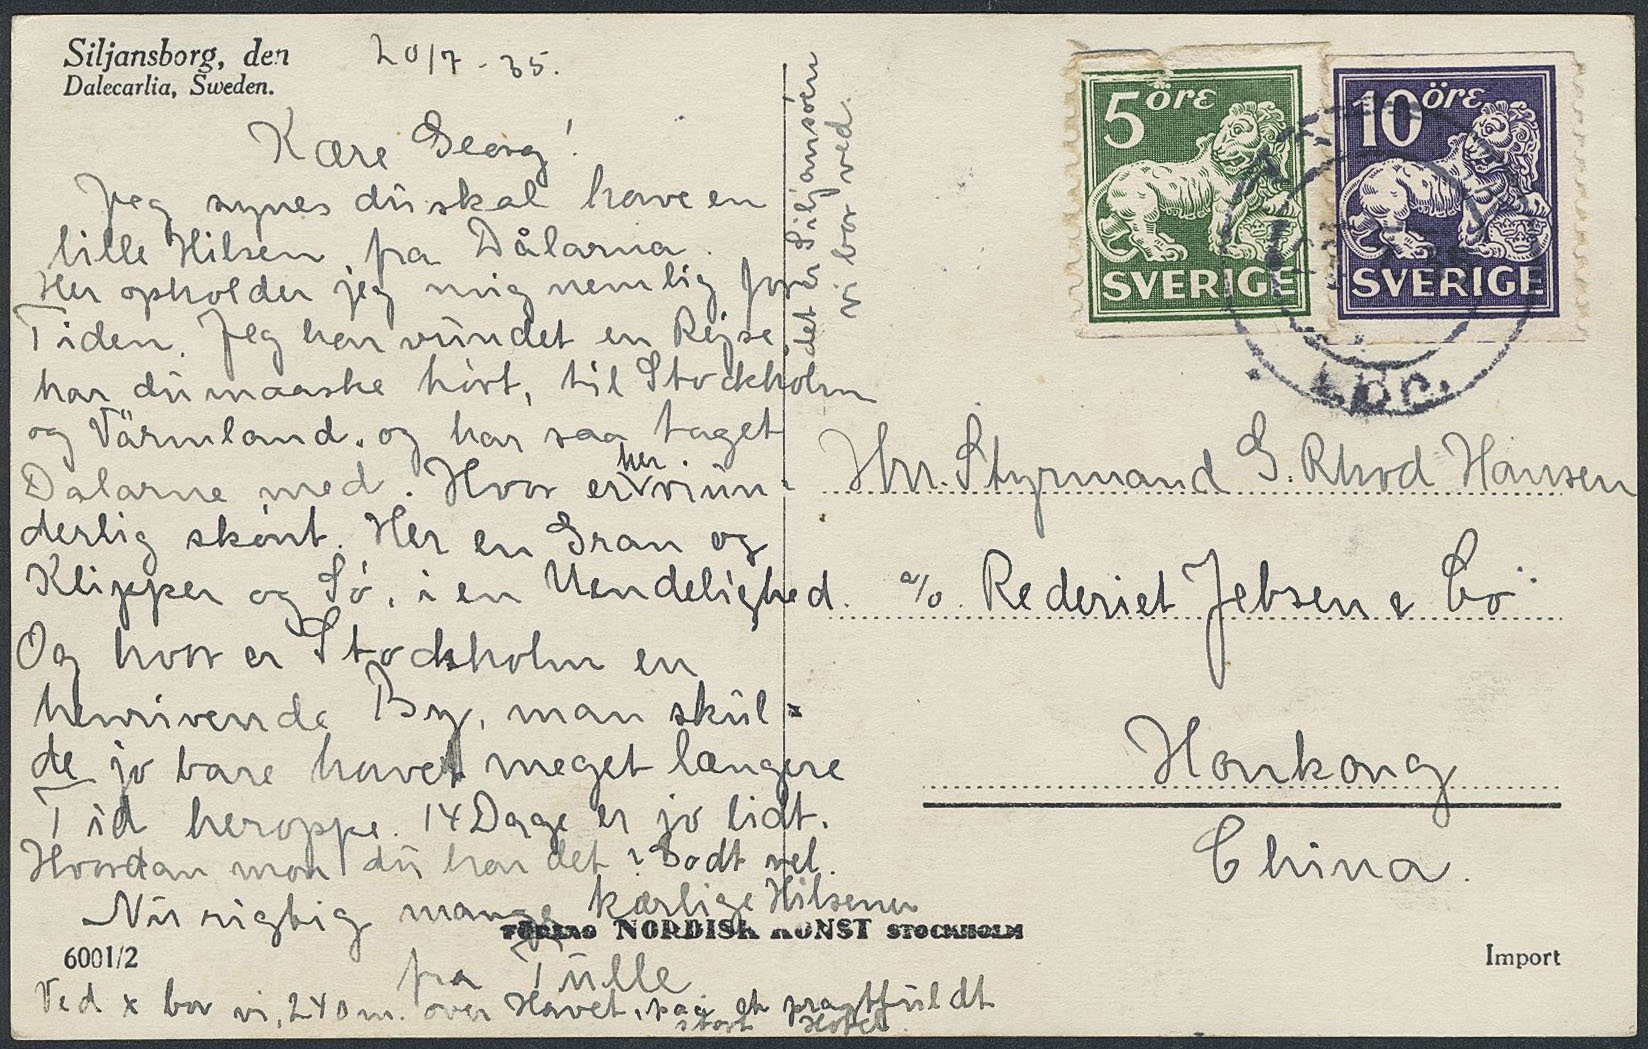 Siljansborg, den 20/7-35.
Dalecarlia, Sweden.
Kære Georg!
Jeg synes du skal have en
lille Hilsen fra Dålarna.
Her opholder jeg mig nemlig for
Tiden. Jeg har vundet en Rejse,
har du maaske hört, til Stockholm
og Värmland. og har saa taget
Dalarne med. Hvor er her vidun-
derlig skönt. Her en Gran og
Klipper og Sö, i en Uendelighed.
Og hvor er Stockholm en
henrivende By, man skul=
de jo bare havet meget længere
Tid heroppe. 14 Dage er jo lidt.
Hvordan mon du har det? Godt vel.
Nu rigtig mange kærlige Hilsener
fra Tulle
Ved x bor vi, 240 m. over Havet, paa et pragtfuldt
stort Hotel.
det er Siljansöen
vi bor ved.
5 öre
SVERIGE
10 öre
SVERIGE
Hrr. Styrmand G. Rhod Hansen
c/o. Rederiet Jebsen & Co
Honkong
China.
FÖRLAG NORDISK KONST STOCKHOLM
6001/2
Import